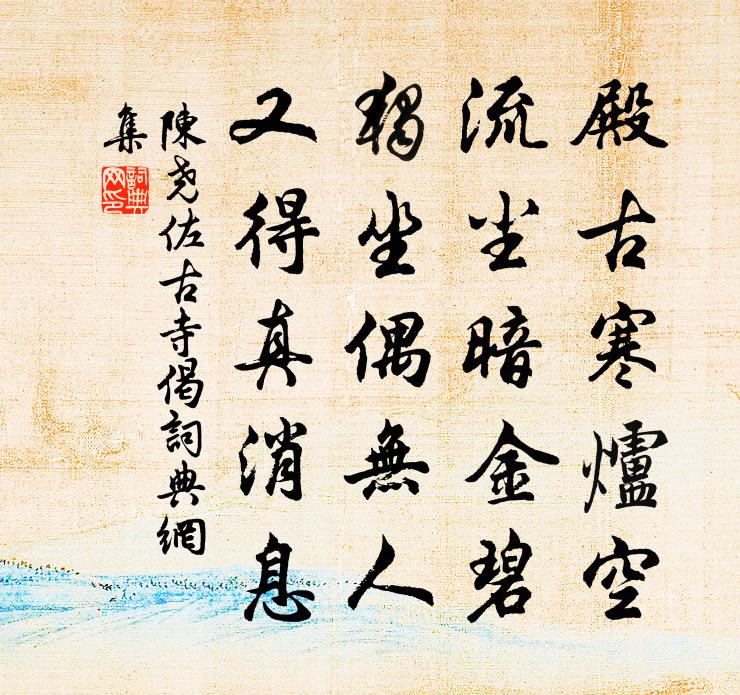 殿古寒爐空
流尘暗金碧
獨坐偶無人
又得真消息
陳堯佐古寺偈詞典網
集
詞典
网印